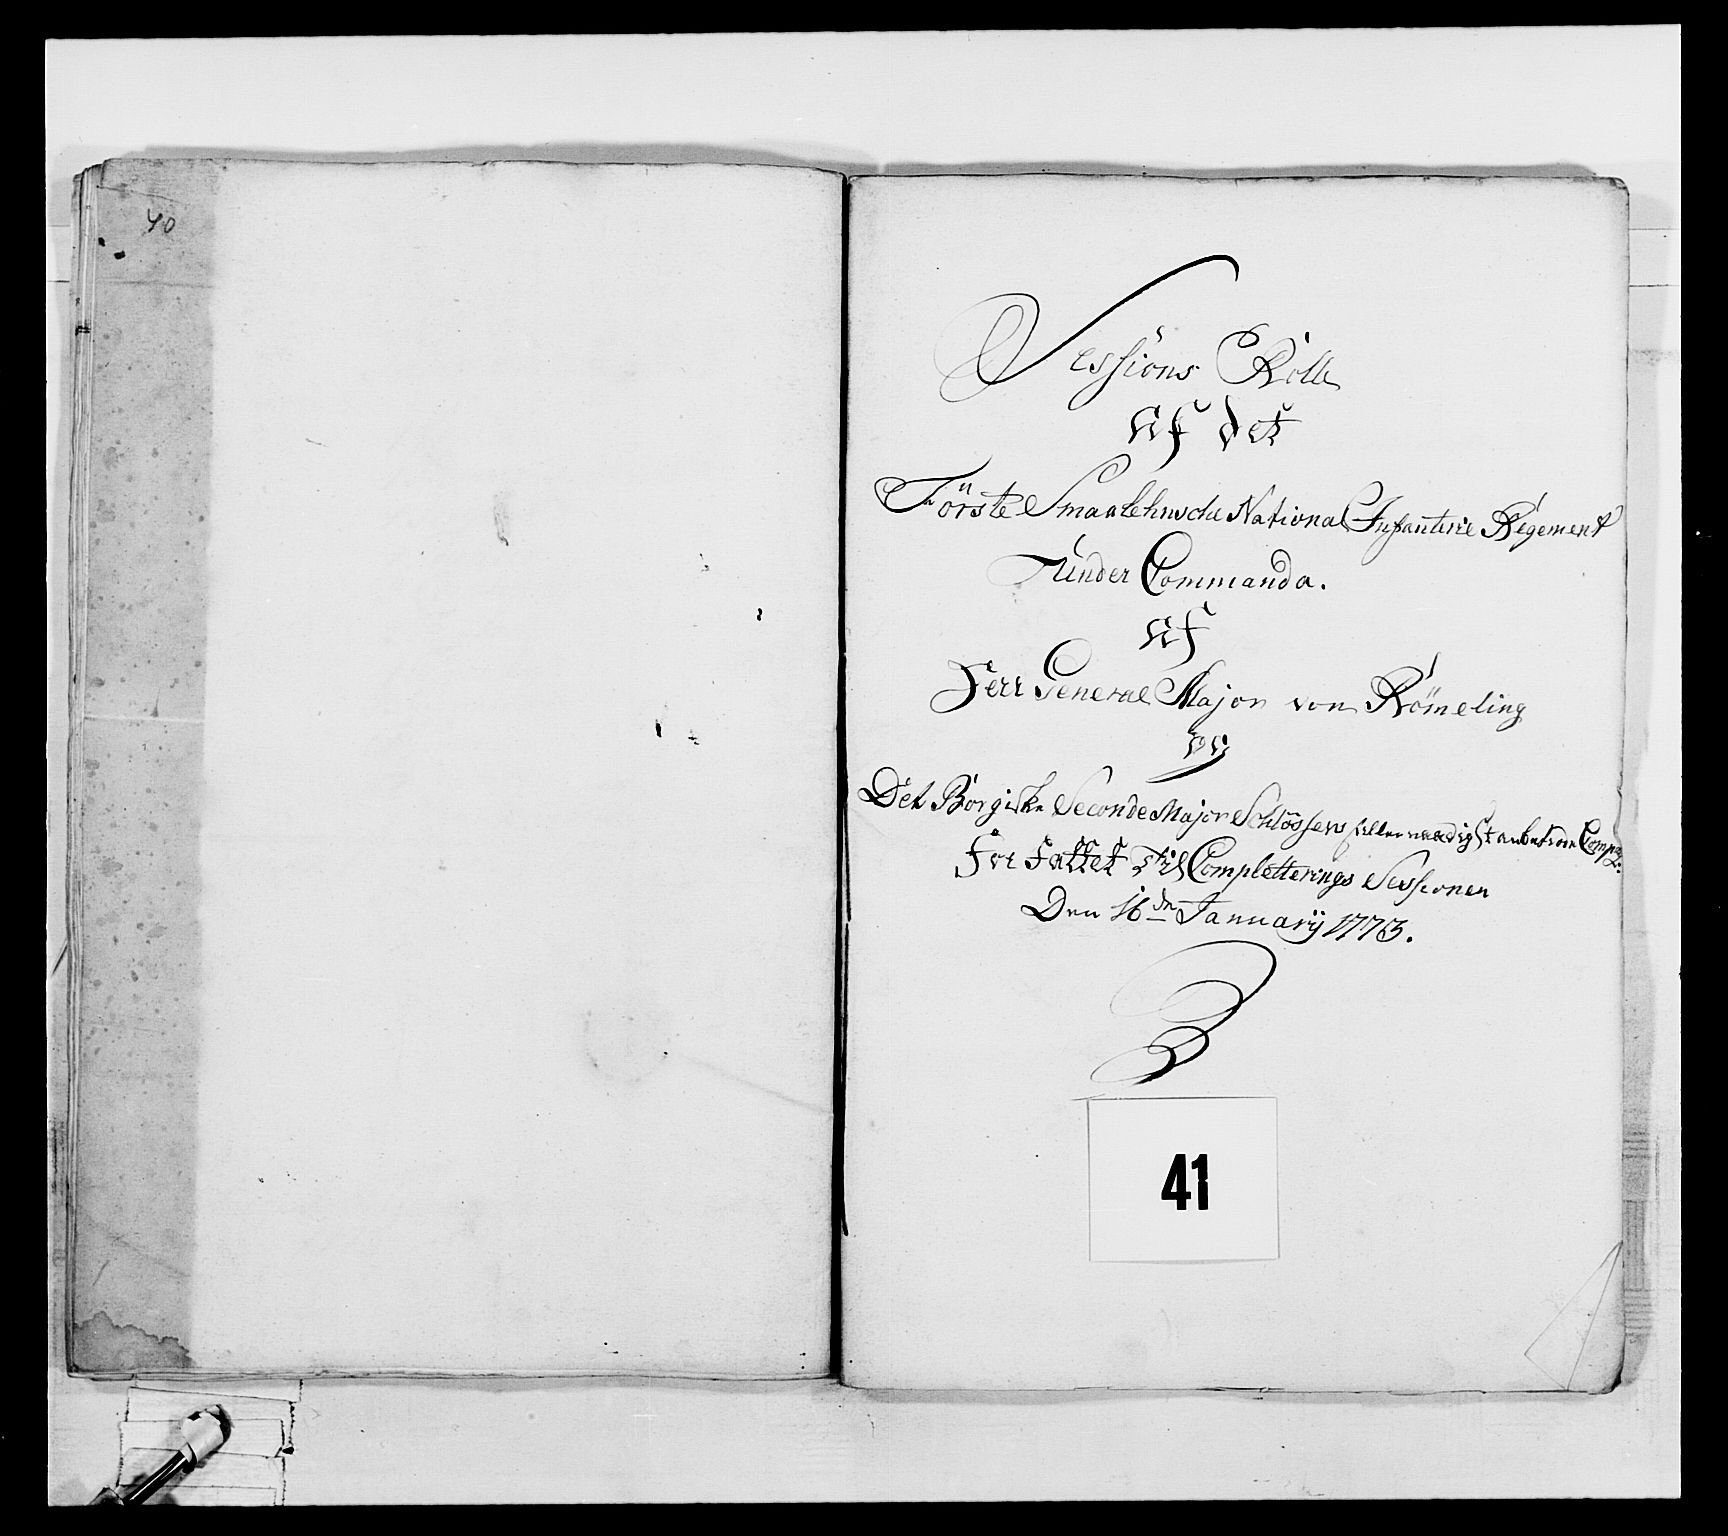 40
Sessions Rolle
Af det
Förste Smaalehnsche National Infanterie Regement
Under Commando.
Af
Herr General Major von Römeling
og
Det Borgiske Seconde Major Schlössers allernaadigst anbetroe Comp:
For fattet Til Completterings Sessionen
Den 16de January 1773.
41